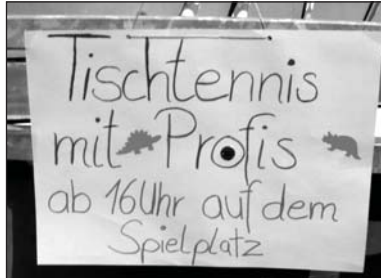 Tischtennis
mit Profis
ab 16Uhr auf dem
Spielplatz